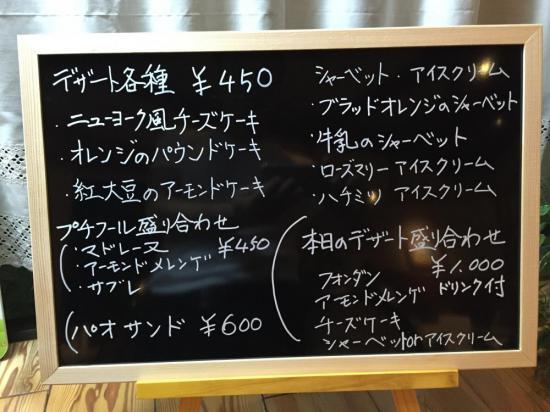 デザート各種 ¥450
・ニューヨーク風チーズケーキ
・オレンジのパウンドケーキ
・紅大豆のアーモンドケーキ
プチフール盛り合わせ
・マドレーヌ ¥450
・アーモンドメレンゲ
・サブレ
パオサンド ¥600
シャーベット・アイスクリーム
・ブラッドオレンジのシャーベット
・牛乳のシャーベット
・ローズマリーアイスクリーム
・ハチミツ アイスクリーム
本日のデザート盛り合わせ
¥1.000
フォンダン
アーモンドメレンゲ ドリンク付
チーズケーキ
シャーベットorアイスクリーム